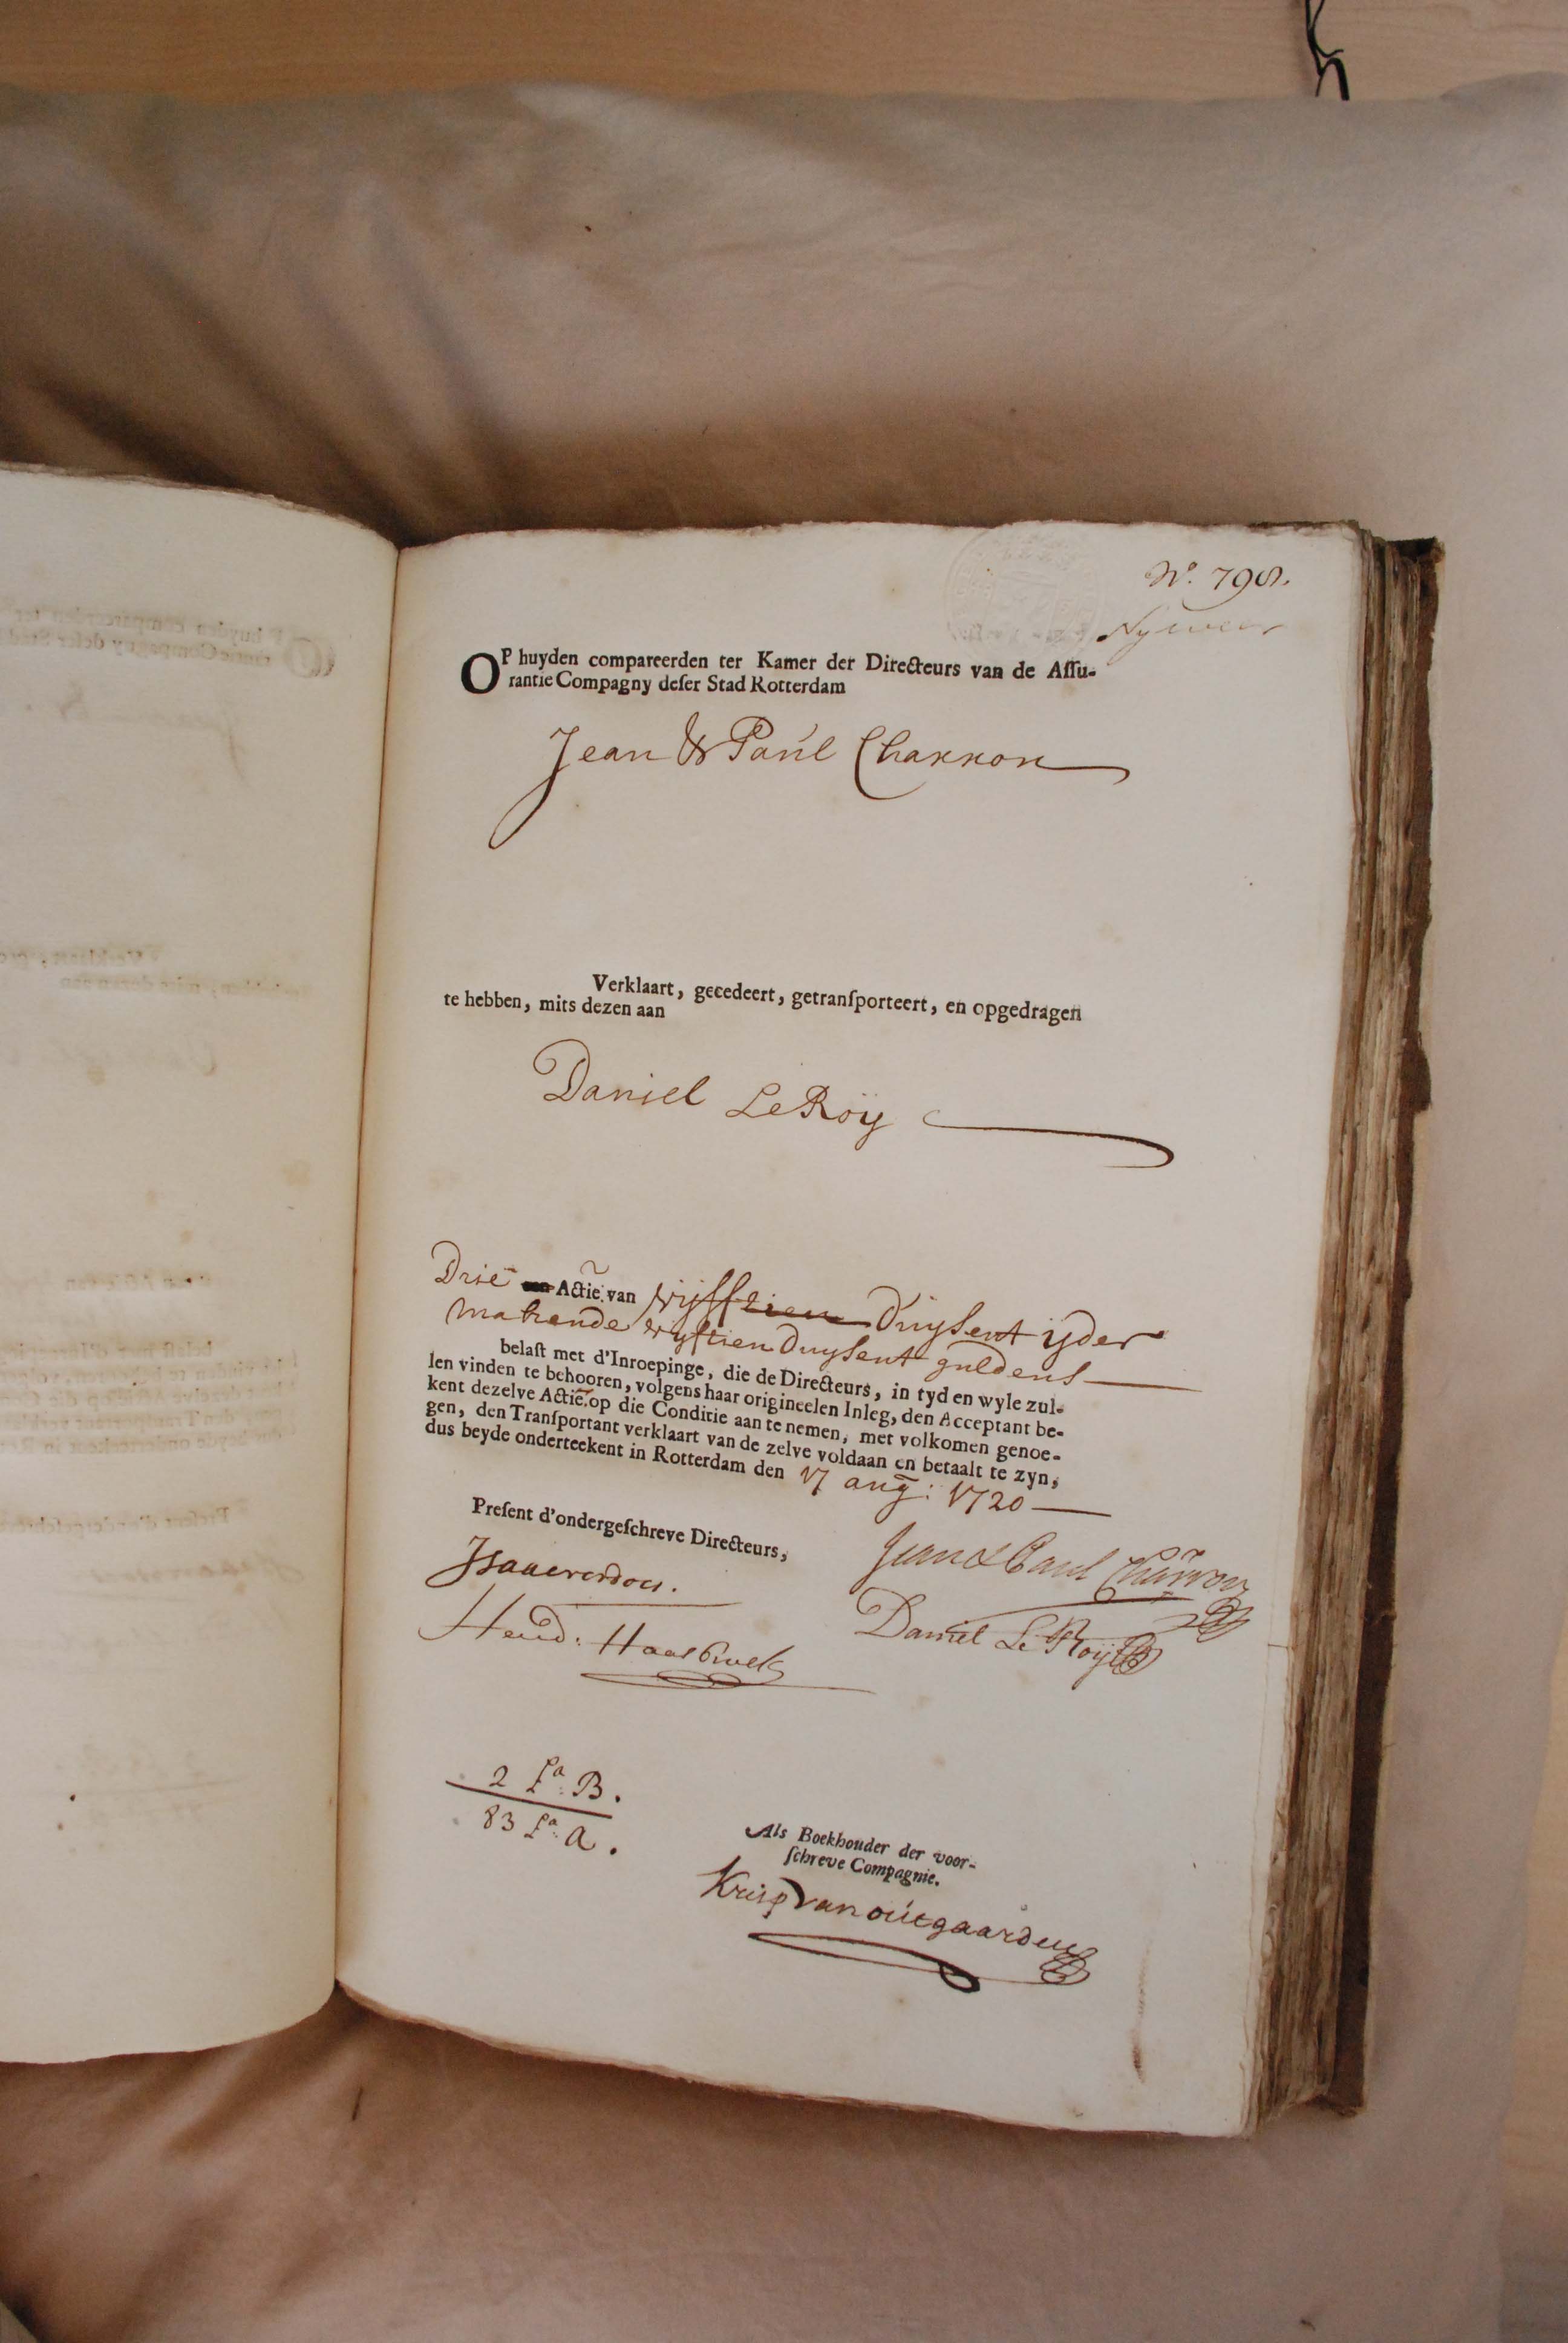 No. 798.
OP huyden compareerden ter Kamer der Directeurs van de Assu-
rantie Compagny deser Stad Rotterdam
Jean & Paul Charron
Verklaart, gecedeert, getransporteert, en opgedragen
te hebben, mits dezen aan
Daniel Le Roÿ
Drie Actie van vijftien Duysent ijder
makende vyftien Duysent guldens
belast met d'Inroepinge, die de Directeurs, in tyd en wyle zul-
len vinden te behooren, volgens haar origineelen Inleg, den Acceptant be-
kent dezelve Actie op die Conditie aan te nemen, met volkomen genoe-
gen, den Transportant verklaart van de zelve voldaan en betaalt te zyn,
dus beyde onderteekent in Rotterdam den 17 aug: 1720
Present d'ondergeschreve Directeurs,
Jean & Paul Charron
Daniel Le Roÿ
2 La. B.
83 La. A.
Als Boekhouder der voor-
schreve Compagnie.
Krisp van outgaarden